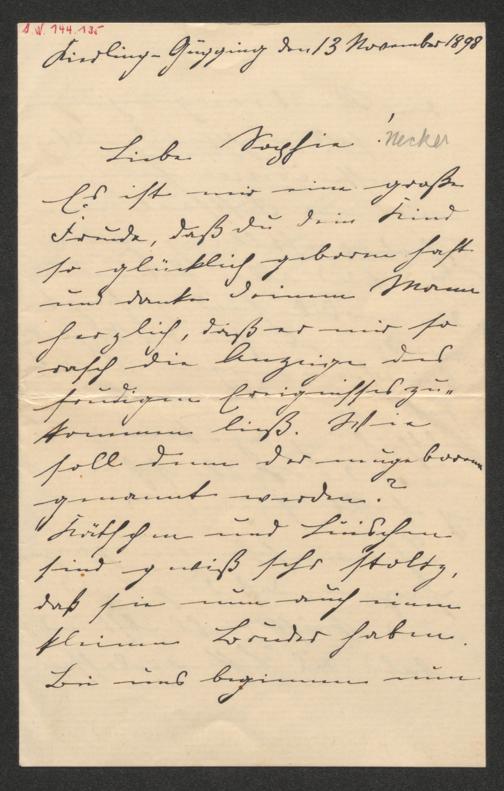 Kierling-Gugging den 13 November 1898
Liebe Sophie!
Necker
Es ist mir eine große
Freude, daß du dein Kind
so glücklich geboren hast
und danke deinem Mann
herzlich, daß er mir so
rasch die Anzeige des
freudigen Ereignisses zu-
kommen ließ. Wie
soll denn der neugeborene
genannt werden?
Käthchen und Luischen
sind gewiß sehr stoltz,
daß sie nun auch einen
kleinen Bruder haben.
Bei uns beginnen nun